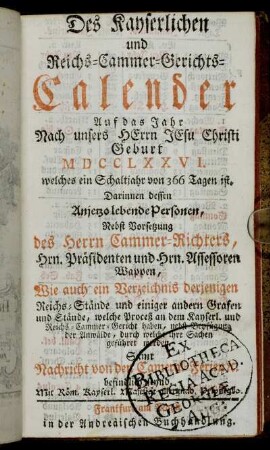 Des Kayserlichen
und
Reichs-Cammer-Gerichts-
Calender
Auf das Jahr
Nach unsers HErrn JEsu Christi
Geburt
MDCCLXXVI.
welches ein Schaltjahr von 366 Tagen ist.
Darinnen dessen
Anjetzo lebende Personen,
Nebst Vorsetzung
des Herrn Cammer-Richters,
Hrn. Präsidenten und Hrn. Assessoren
Wappen,
Wie auch ein Verzeichnis derjenigen
Reichs-Stände und einiger andern Grafen
und Stände, welche Proceß an dem Kayserl. und
Reichs-Cammer-Gericht haben, nebst Beyfügung
der Anwälde, durch welche ihre Sachen
geführet werden
Samt
Nachricht von den Cammer Ferien
befindlich sind.
Mit Röm. Kayserl. Majestät Privilegio.
Frankfurt am
in der Andreäischen Buchhandlung.
EX
BIBLIOTHECA
REGIA ACAD.
GEORGIÆ
AUG.